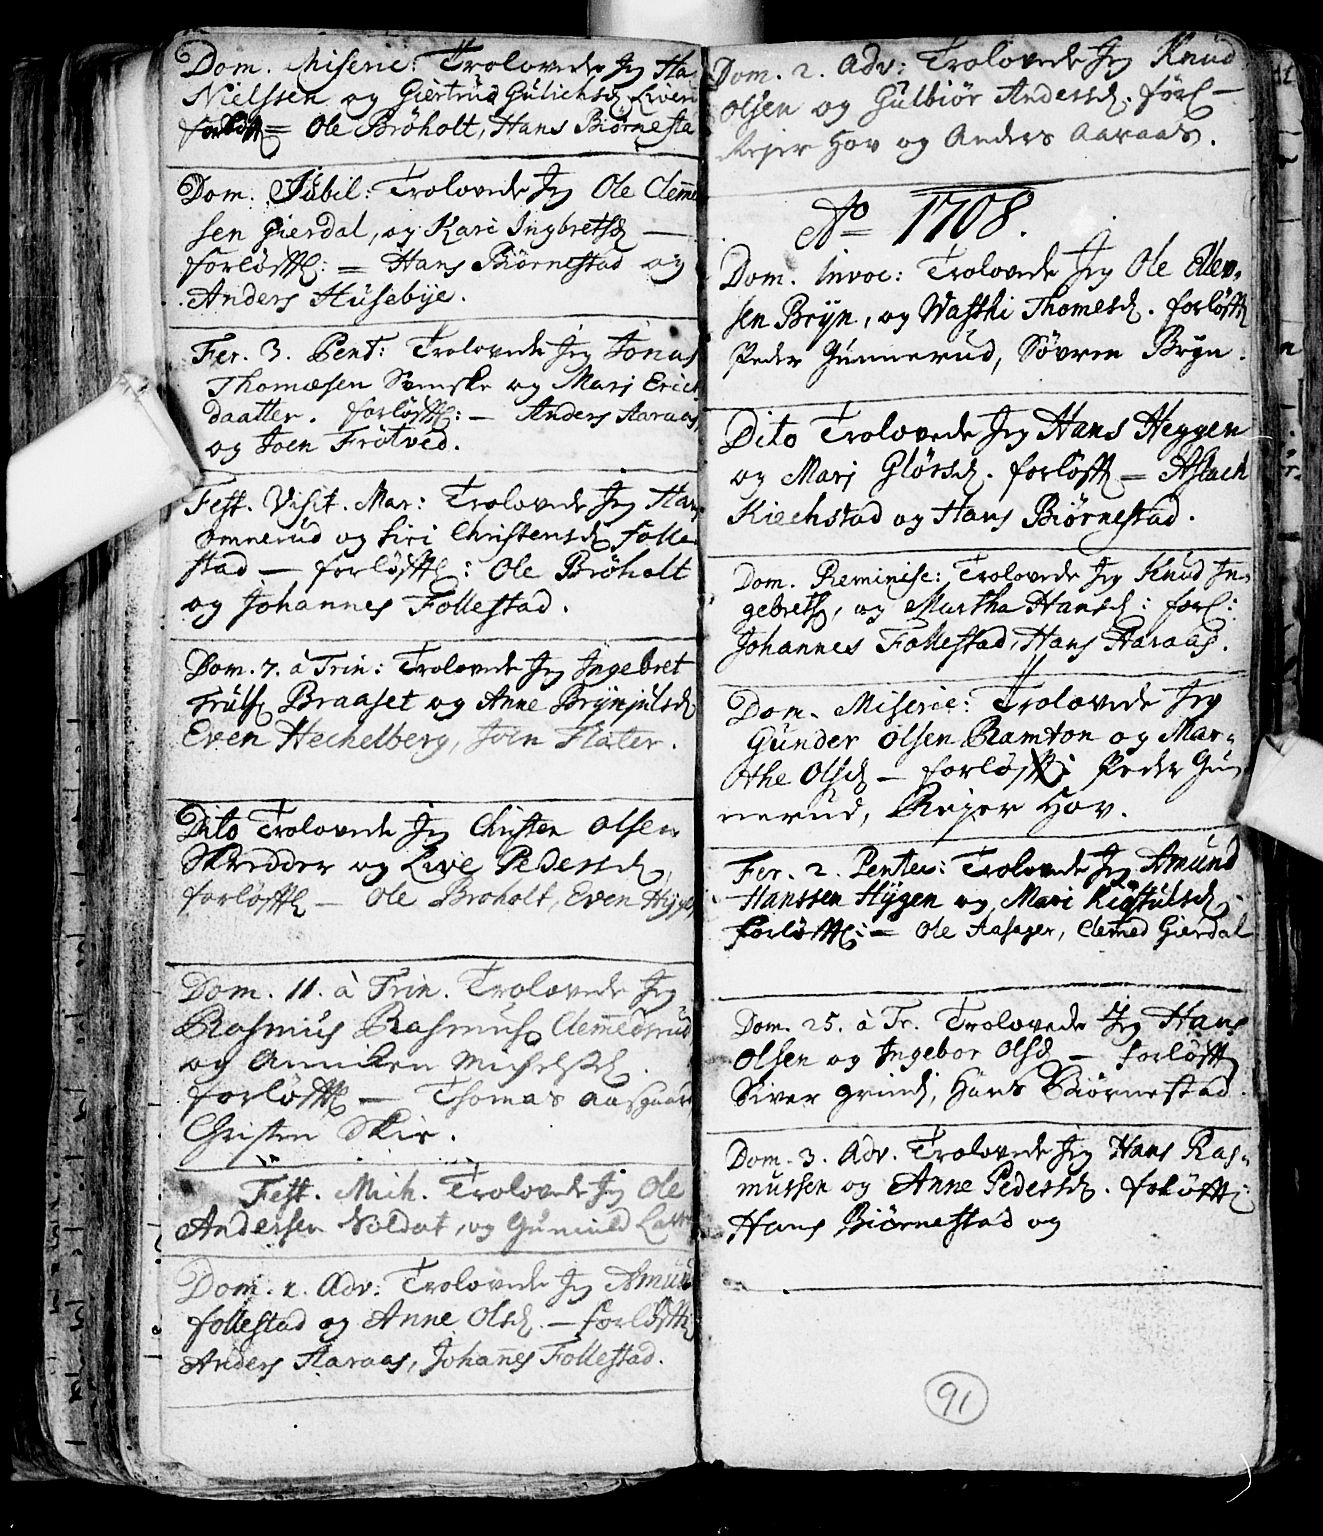 Dom. Miseric: Trolovede Jeg Ha
Nielssen og Giertrud Gulichsd Liven
forløfft = Ole Brøholt, Hans Biørnesta
Dom. Jubil: Trolovede Jeg Ole Clemme
sen Gierdal, og Kari Ingbretsd —
forløfft: = Hans Biørnestad og
Anders Husebye.
Fer. 3. Pent: Trolovede Jeg Jonas
Thomæsen Svenske og Marj Erich
daatter. forløfft: — Anders Aaraas,
og Joen Frøtved.
Fest. Visit. Mar: Trolovede Jeg Hans
Omnerud og Siri Christensd Folle
stad — forløfft: Ole Brøholt
og Johannes Follestad.
Dom. 7. à Trin: Trolovede Jeg Ingebret
Truls Braaset og Anne Brynjulsd
Even Heckelberg, Joen Flater.
Dito Trolovede Jeg Christen Olsen
Skredder og Live Pedersd,
forløfft — Ole Broholt, Even Hyge
Dom. 11. à Trin. Trolovede Jeg
Rasmus Rasmus Clemmedsrud
og Anniken Michelsd.
forløfft — Thomas Aasguar
Christen Skie.
Fest. Mich. Trolovede Jeg Ole
Andersen Soldat, og Gunild Lar
Dom. 1. Adv: Trolovede Jeg Amun
follestad og Anne Olsd. — forløfft
Anders Aaraas, Johannes Follestad.
Dom. 2. Adv: Trolovede Jeg Knud
Olsen og Gulbiør Andersd. førl —
Rejer Hov og Anders Aaraas.
Ao 1708.
Dom. Invoc: Trolovede Jeg Ole Ellev-
sen Bryn, og Wasshi Thomesd. forløfft
Peder Gunnerud, Søvren Bryn.
Dito Trolovede Jeg Hans Heggen
og Marj Glørsd. forløfft — Aslach
Kiechstad og Hans Biørnestad.
Dom. Reminisc: Trolovede Jeg Knud In-
gebrets, og Martha Hansd: forl:
Johannes Follestad, Hans Aaraas.
Dom. Miseric: Trolovede Jeg
Gunder Olsen Ramton og Mar-
the Olsd — forløfft: Peder Gun
nerud, Rejer Hov.
Fer. 2. Pentec: Trolovede Jeg Amund
Hanssen Hygen og Mari Kiøstulsd
forløfft: = Ole Aasager, Clemed Gierdal
Dom. 25. à Tr. Trolovede Jeg Hans
Olsen og Ingebor Olsd — forløfft
Siver Grini, Hans Biørnestad.
Dom. 3. Adv. Trolovede Jeg Hans Ras-
mussen og Anne Pedersd. foløfft:
Hans Biørnestad og
91